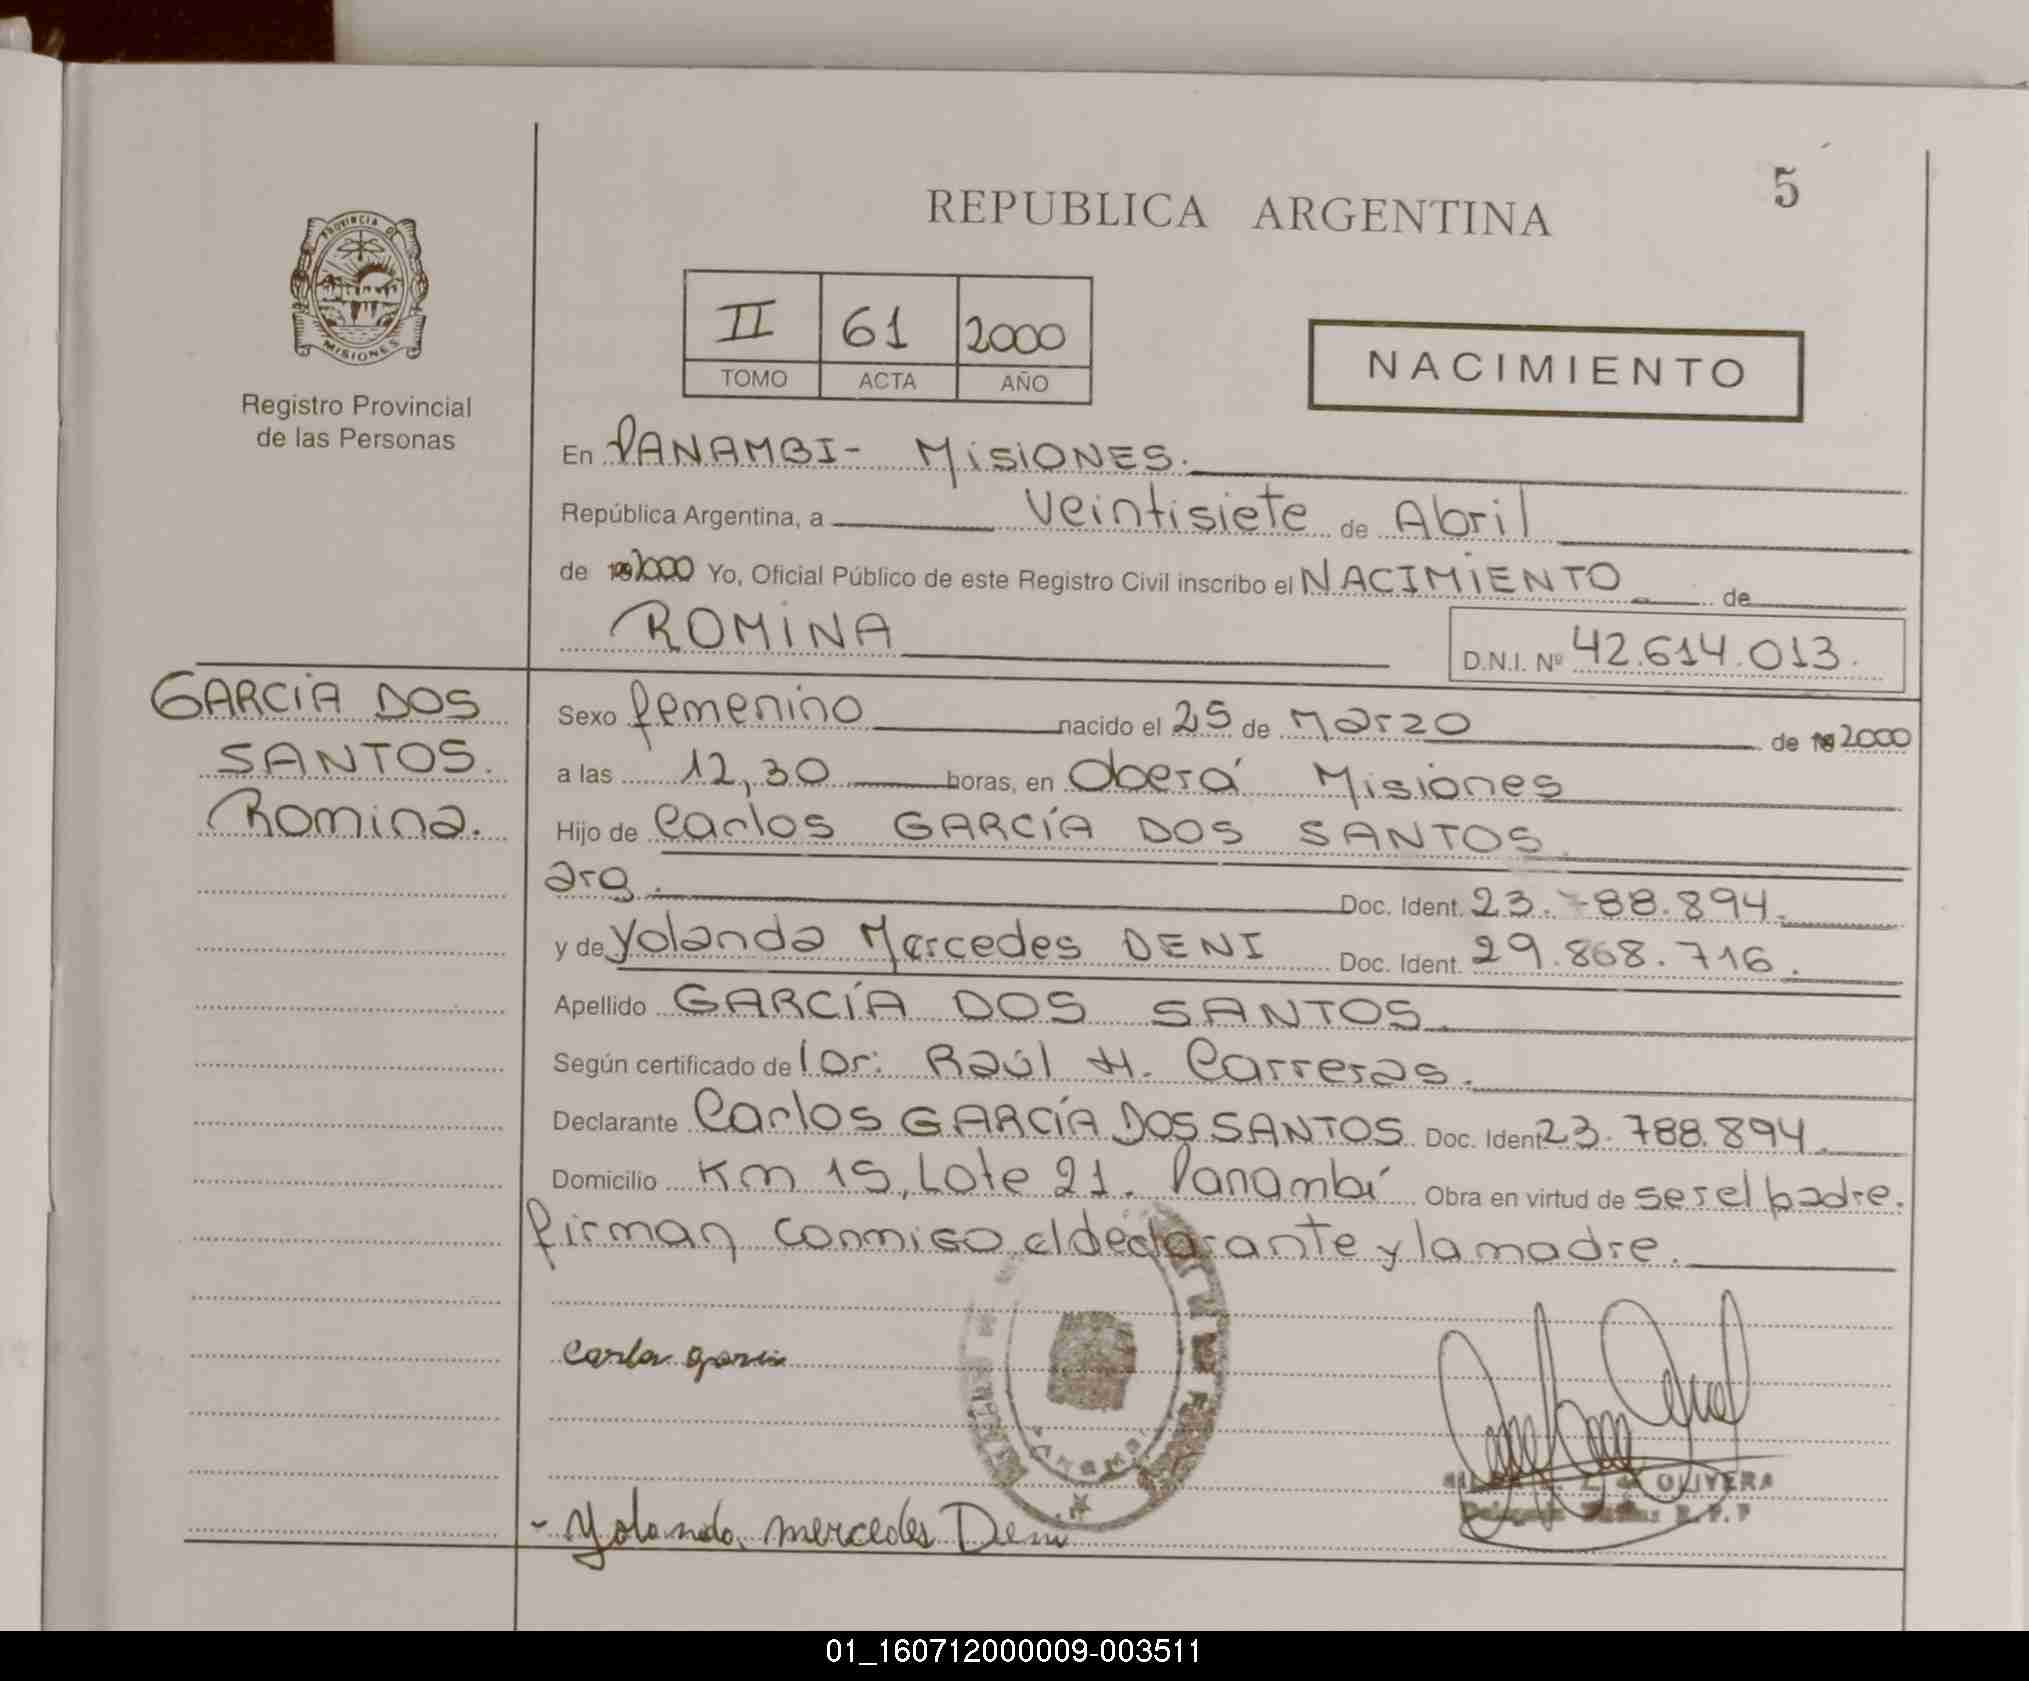 REPUBLICA ARGENTINA
5
PROVINCIA DE
MISIONES
Registro Provincial
de las Personas
II 61 2000
TOMO ACTA AÑO
NACIMIENTO
En PANAMBI- MisiONES.
República Argentina, a veintisiete de Abril
de 2000 Yo, Oficial Público de este Registro Civil inscribo el NACIMIENTO de
ROMINA
D.N.I. Nº 42.614.013.
GARCIA DOS
SANTOS.
Romina.
Sexo femenino nacido el 25 de Marzo de 2000
a las 12,30 horas, en Oberá Misiones
Hijo de Carlos GARCÍA DOS SANTOS
arg. Doc. Ident. 23.788.894.
y de Yolanda Mercedes DENI Doc. Ident. 29.868.716.
Apellido GARCÍA DOS SANTOS
Según certificado de Raúl H. Carreras.
Declarante Carlos GARCÍA DOS SANTOS Doc. Ident 23.788.894.
Domicilio Km 15, Lote 21. Panambí Obra en virtud de ser el padre.
firman conmigo el declarante y la madre.
Carlos garcia
PANAMBI
OLIVERA
R.P.P
- Yolanda mercedes Deni
01_160712000009-003511